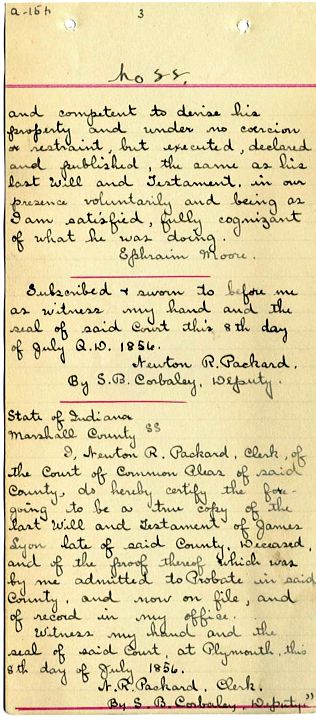 a-154
3
No 58.
and competent to devise his
property and under no coercion
or restraint, but executed, declared
and published, the same as his
last Will and Testament, in our
presence voluntarily and being as
I am satisfied, fully cognizant
of what he was doing.
Ephraim Moore.
Subscribed & sworn to before me
as witness my hand and the
seal of said Court this 8th day
of July A.D. 1856.
Newton R. Packard.
By S. B. Corbaley, Deputy.
State of Indiana
Marshall County SS
I, Newton R. Packard, Clerk, of
the Court of Common Pleas of said
County, do hereby certify the fore-
going to be a true copy of the
last Will and Testament of James
Lyon late of said County, Deceased,
and of the proof thereof which was
by me admitted to Probate in said
County, and now on file, and
of record in my office.
Witness my hand and the
seal of said Court, at Plymouth, this
8th day of July 1856.
N. R. Packard, Clerk.
By S. B. Corbaley, Deputy"